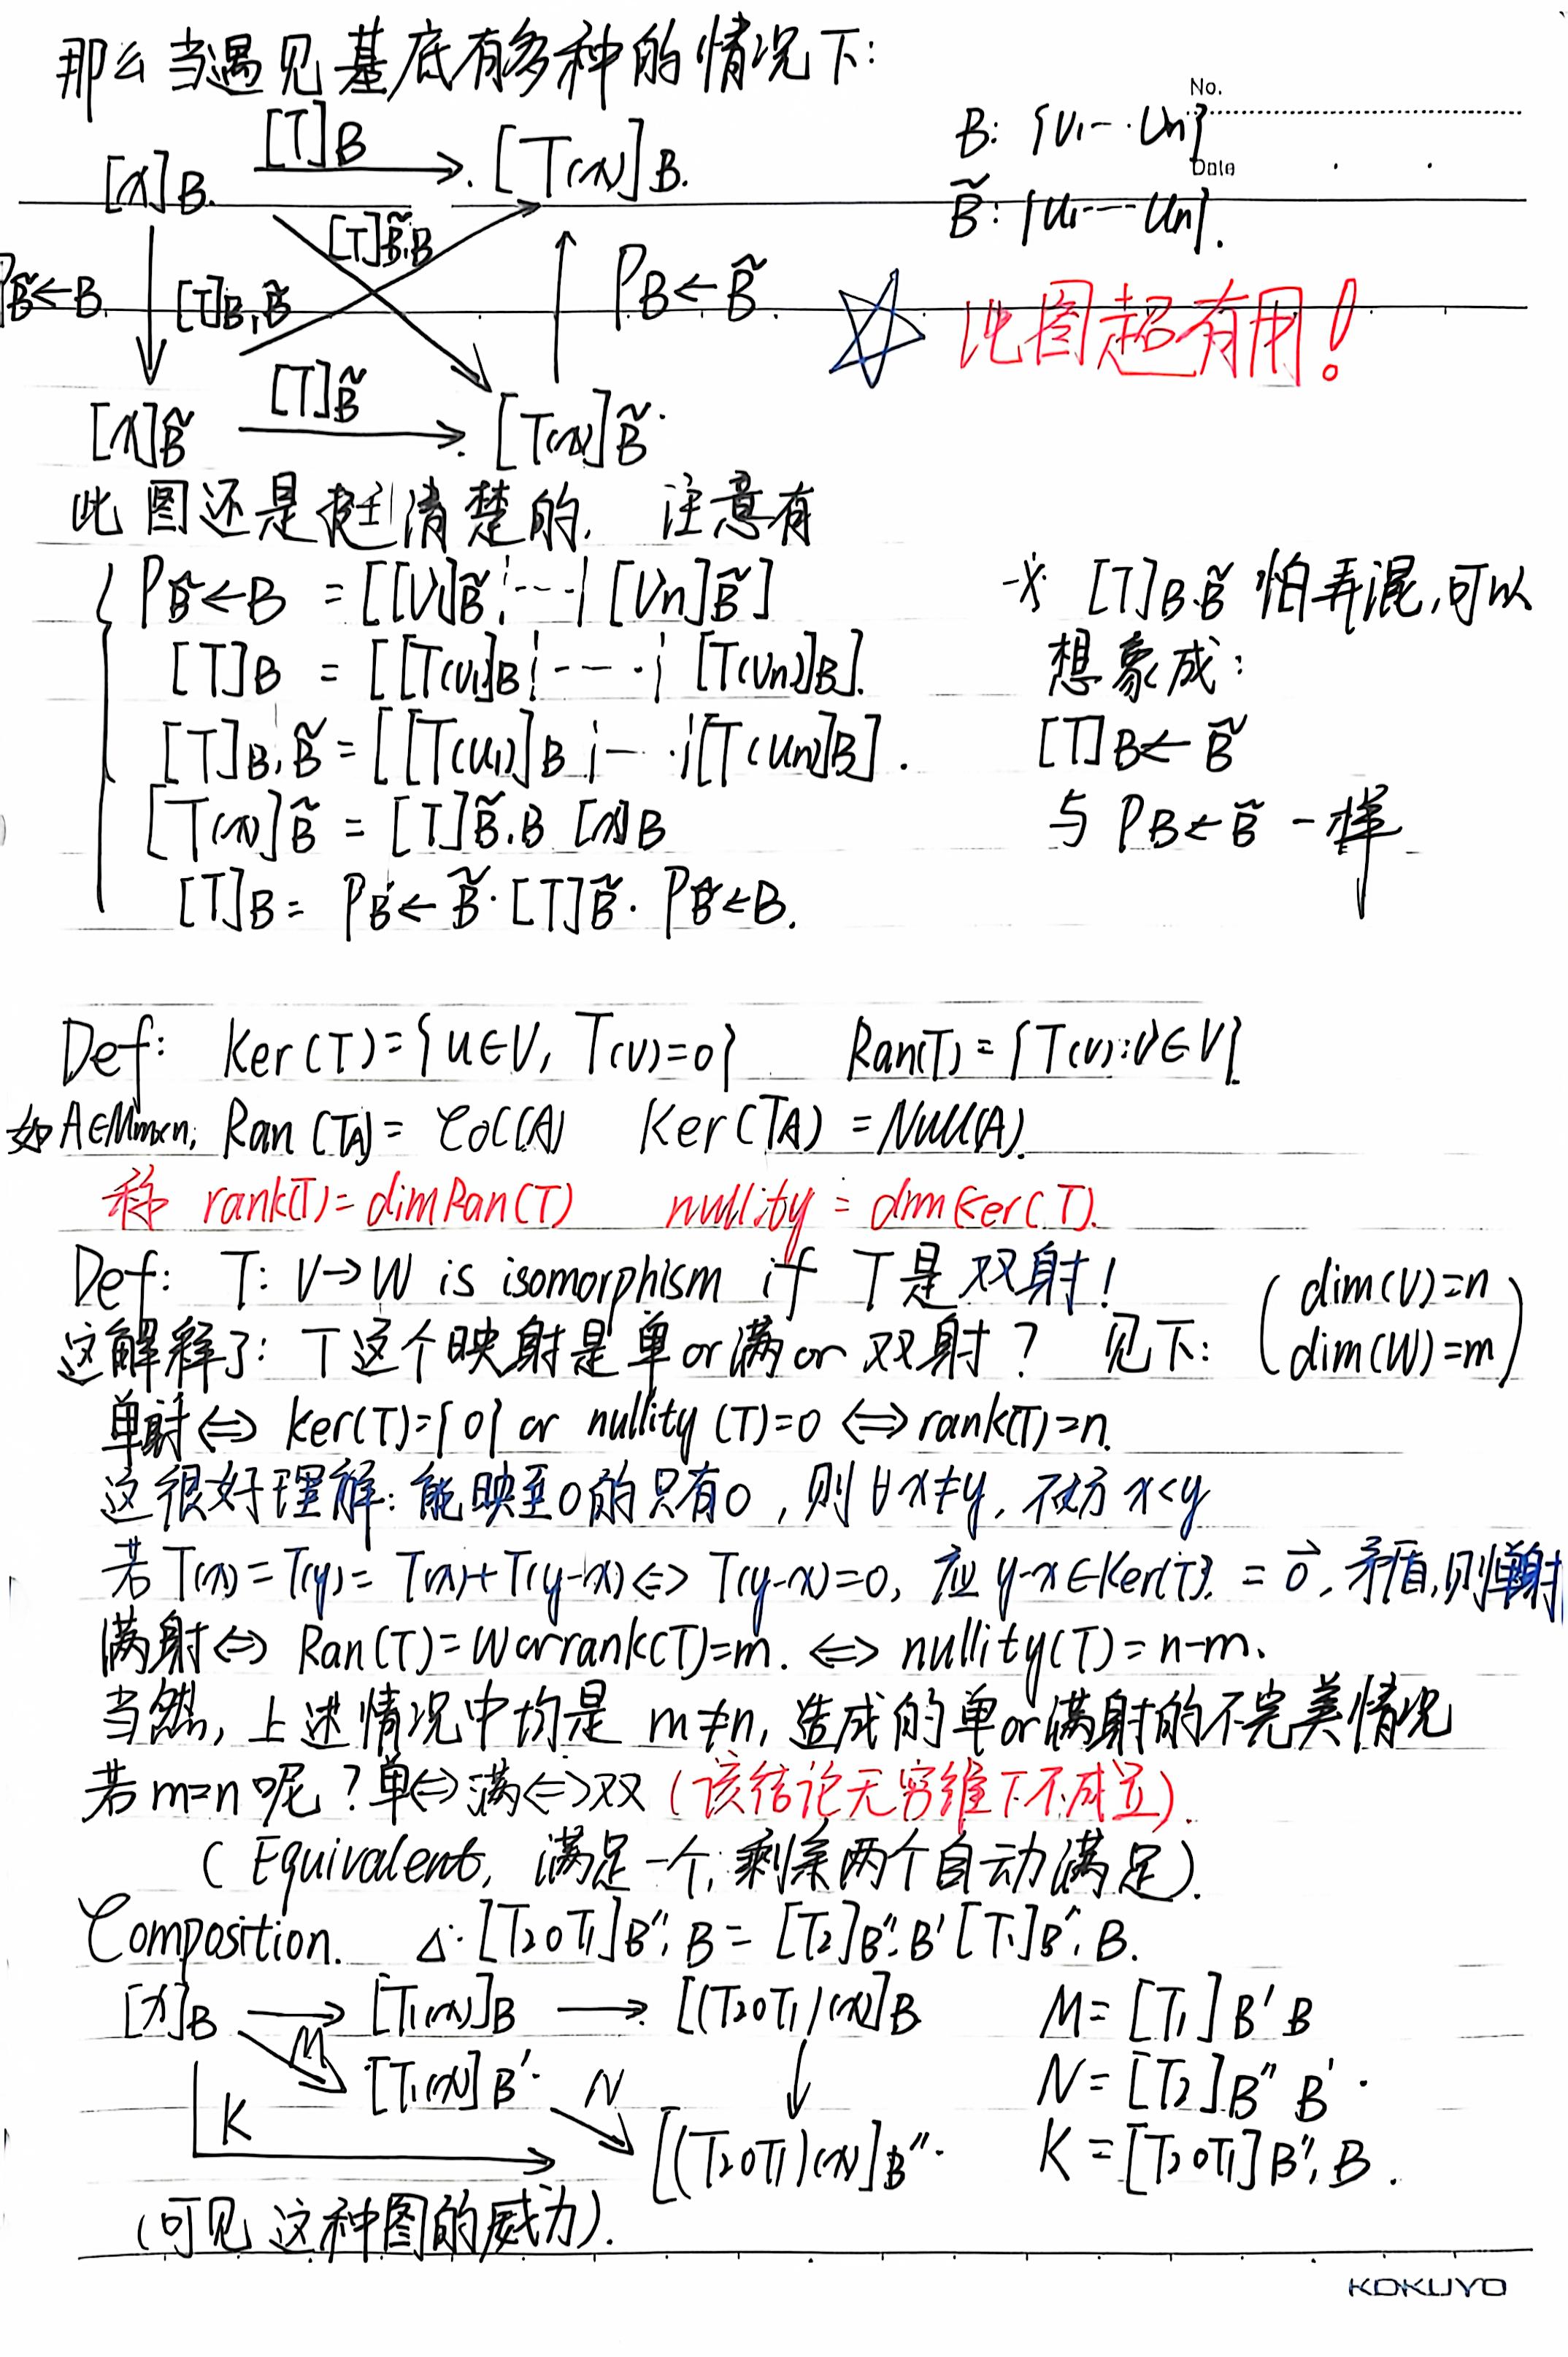 那么当遇见基底有多种的情况下:
No.
Date
[x]B [T]B [T(x)]B.
B: {v1-··vn}
B̃: {u1----un}.
[T]B̃,B
PB̃←B [T]B,B̃ PB←B̃
☆ 此图超有用!
[x]B̃ [T]B̃ [T(x)]B̃
此图还是挺清楚的, 注意有
PB̃←B = [[v1]B̃ ¦···¦ [vn]B̃]
[T]B = [[T(v1)]B ¦----·¦ [T(vn)]B].
[T]B,B̃ = [[T(u1)]B ¦--·¦ [T(un)]B].
[T(x)]B̃ = [T]B̃,B [x]B
[T]B = PB←B̃·[T]B̃·PB̃←B.
※ [T]B,B̃ 怕弄混,可以
想象成:
[T]B←B̃
与 PB←B̃ 一样
Def: Ker(T)={u∈V, T(v)=0} Ran(T)={T(v):v∈V}
如A∈Mm×n, Ran(TA)= Col(A) Ker(TA)=Null(A).
称 rank(T)=dimRan(T) nullity = dimKer(T).
Def: T: V→W is isomorphism if T是双射!
(dim(V)=n
dim(W)=m)
这解释了: T这个映射是单or满or双射? 见下:
单射⇔ Ker(T)={0} or nullity(T)=0 ⇔ rank(T)=n.
这很好理解: 能映至0的只有0, 则∀x≠y, 不妨x<y
若T(x)=T(y)= T(x)+T(y-x)⇔ T(y-x)=0, 应y-x∈Ker(T). = 0⃗, 矛盾,则单射
满射⇔ Ran(T)=W or rank(T)=m. ⇔ nullity(T)=n-m.
当然, 上述情况中均是 m≠n, 造成的单or满射的不完美情况
若m=n呢?单⇔满⇔双 (该结论无穷维下不成立).
(Equivalent, 满足一个,剩余两个自动满足).
Composition. Δ:[T2∘T1]B'',B = [T2]B'',B' [T1]B',B.
[x]B → [T1(x)]B → [(T2∘T1)(x)]B
M [T1(x)]B' N
K [(T2∘T1)(x)]B''.
M=[T1]B'B
N=[T2]B''B'.
K=[T2∘T1]B'',B.
(可见这种图的威力).
KOKUYO